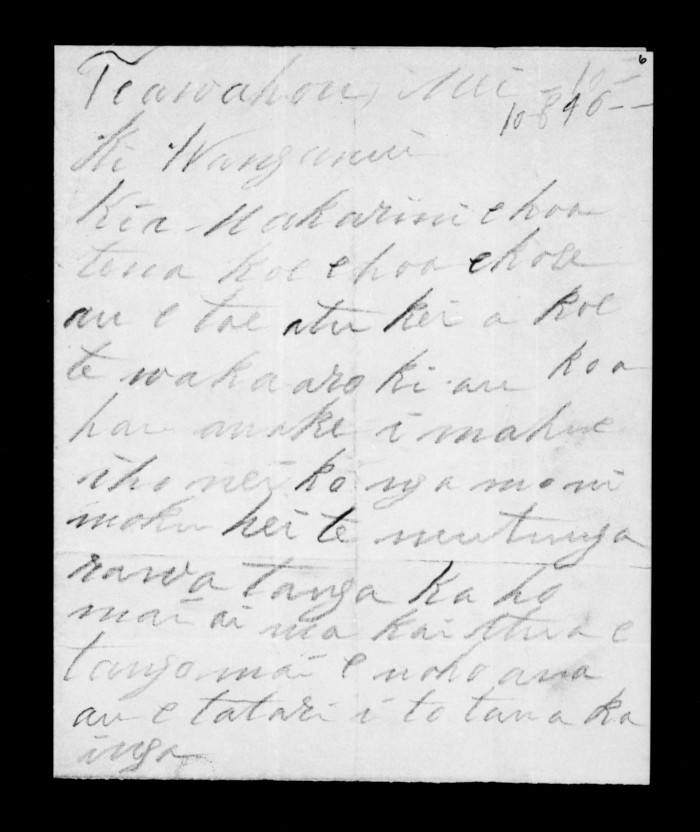 6
Teawahou, Mei 10
10-8 46--
Ki Wanganui
Kia Makarini e hoa
tena koe e hoa ekore
au e tae atu kei a koe
te wakaaro ki au koa
hau anake i mahue
iho nei ko nga moni
moku hei te mutunga
rawa tanga ka ho
mai ai ma kai Atua e
tango mai e noho ana
au e tatari i to tana ka
inga